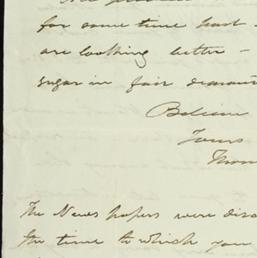 for some time past
are looking better –
sugar in fair
Believe
Yours
The News papers were
the time to which you